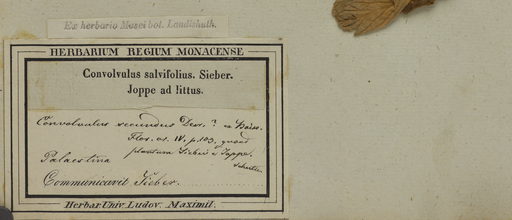 Ex herbario Musei bot. Landishuth.
HERBARIUM REGIUM MONACENSE
Convolvulus salvifolius. Sieber.
Joppe ad littus.
Convolvulus secundus Desr. ? ex Boiss.
Flor. or. IV, p. 103, quoad
plantam Sieberi e Joppe.
Palaestina
Communicavit Sieber.
Herbar. Univ. Ludov. Maximil.